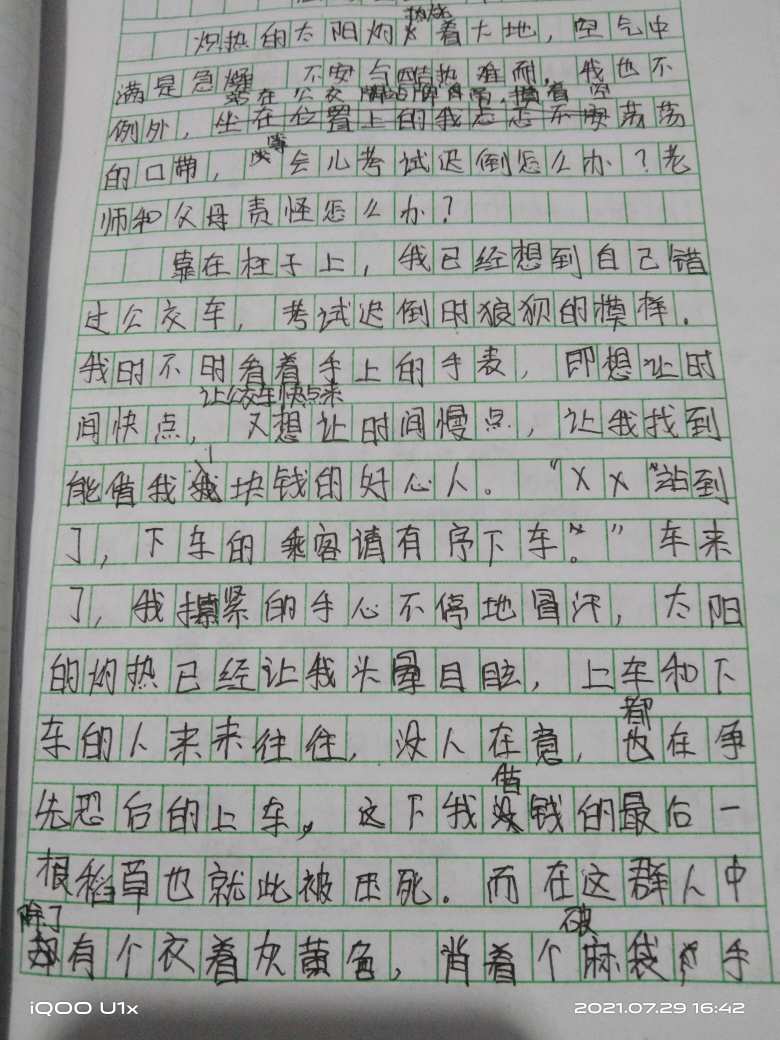 炽热的太阳灼烧着大地，空气中
满是急燥 不安与酷热难耐，我也不
站在公交 牌
例外，坐在位置上的我忐忑不安荡荡
的口带，等会儿考试迟倒怎么办？老
师和父母责怪怎么办？
靠在柱子上，我已经想到自己错
过公交车，考试迟倒时狼狈的模样．
我时不时看着手上的手表，即想让时
让公交车快点来
间快点，又想让时间慢点，让我找到
能借我1块钱的好心人。“XX”站到
了，下车的乘客请有序下车。”车来
了，我攥紧的手心不停地冒汗，太阳
的灼热已经让我头晕目眩，上车和下
都
车的人来来往往，没人在意，也在争
借
先恐后的上车，这下我钱的最后一
根稻草也就此被压死．而在这群人中
除了 破
有个衣着灰黄色，背着个麻袋 手
iQOO U1x
2021.07.29 16:42